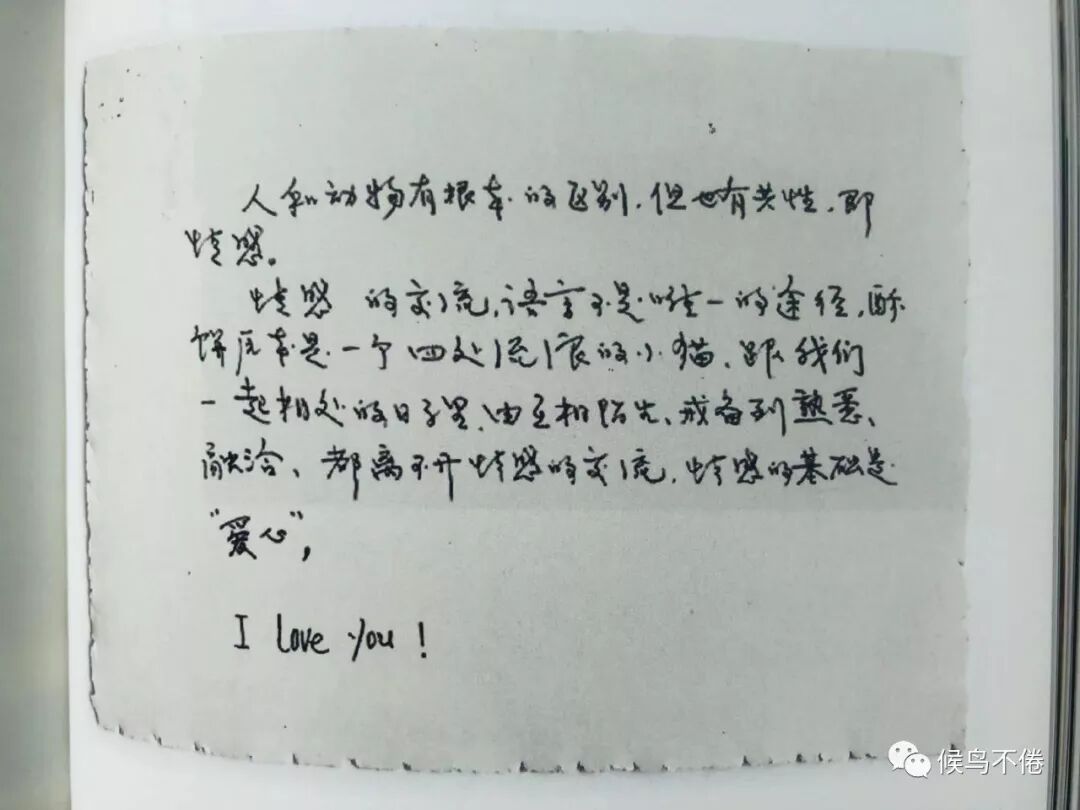 人和动物有根本的区别,但也有共性,即
情感。
情感 的交流,语言不是唯一的途径,酥
饼原本是一个四处流浪的小猫,跟我们
一起相处的日子里,由互相陌生、戒备到熟悉、
融洽、都离不开情感的交流,情感的基础是
“爱心”,
I love you!
候鸟不倦